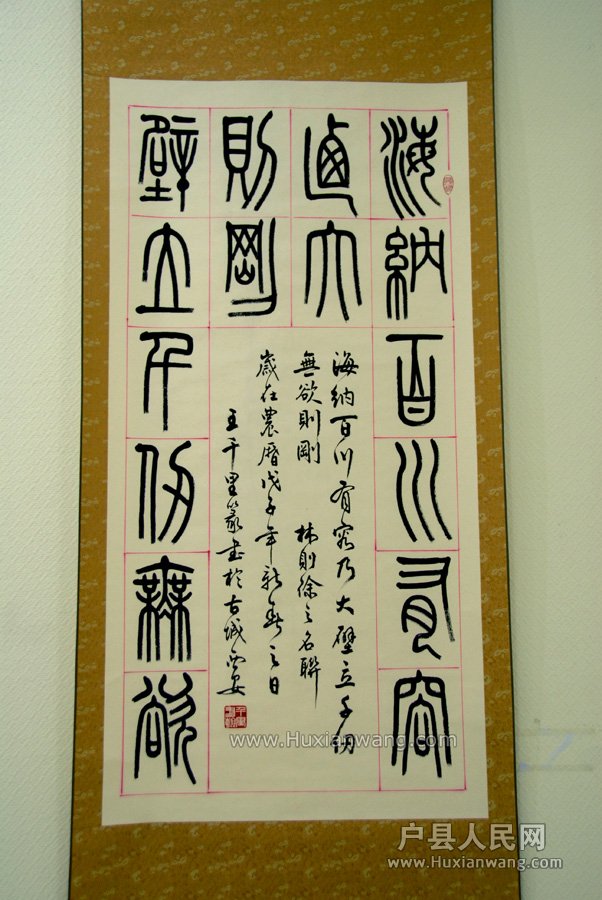 海納百川有容
迺大
壁立千仞無欲
則剛
海納百川有容乃大壁立千仞
無欲則剛 林則徐之名聯
歲在農曆戊子年新春之日
王千里篆書於古城西安
www.Huxianwang.com
户县人民网
www.Huxianwang.com